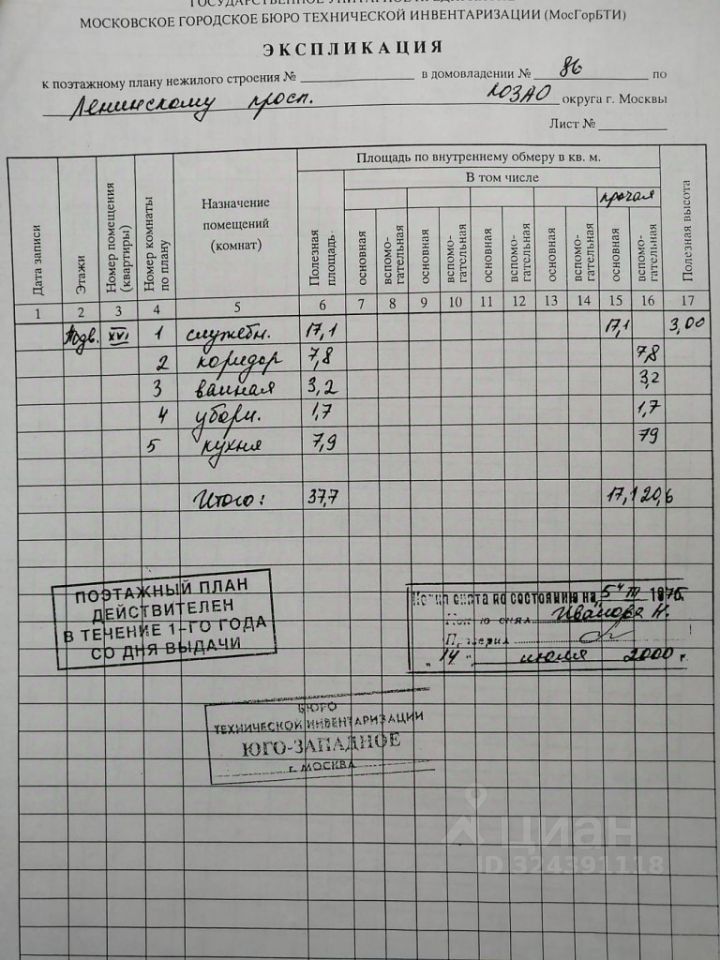 МОСКОВСКОЕ ГОРОДСКОЕ БЮРО ТЕХНИЧЕСКОЙ ИНВЕНТАРИЗАЦИИ (МосГорБТИ)
ЭКСПЛИКАЦИЯ
к поэтажному плану нежилого строения № в домовладении № 86 по
Ленинскому просп. ЮЗАО округа г. Москвы
Лист №
Дата записи
Этажи
Номер помещения (квартиры)
Номер комнаты по плану
Назначение помещений (комнат)
Площадь по внутреннему обмеру в кв. м.
Полезная площадь.
В том числе
прочая
основная вспомо-гательная основная вспомо-гательная основная вспомо-гательная основная вспомо-гательная основная вспомо-гательная
Полезная высота
1 2 3 4 5 6 7 8 9 10 11 12 13 14 15 16 17
Подв. XVI 1 служебн. 17,1 17,1 3,00
2 коридор 7,8 7,8
3 ванная 3,2 3,2
4 уборн. 1,7 1,7
5 кухня 7,9 79
Итого: 37,7 17,1 20,6
ПОЭТАЖНЫЙ ПЛАН
ДЕЙСТВИТЕЛЕН
В ТЕЧЕНИЕ 1-ГО ГОДА
СО ДНЯ ВЫДАЧИ
снята по состоянию на
Иванова Н.
"14" июля 2000 г.
БЮРО
ТЕХНИЧЕСКОЙ ИНВЕНТАРИЗАЦИИ
ЮГО-ЗАПАДНОЕ
г. МОСКВА
циан
ID 324391118